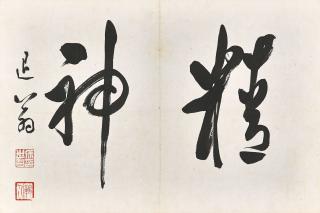 精
神
退翁